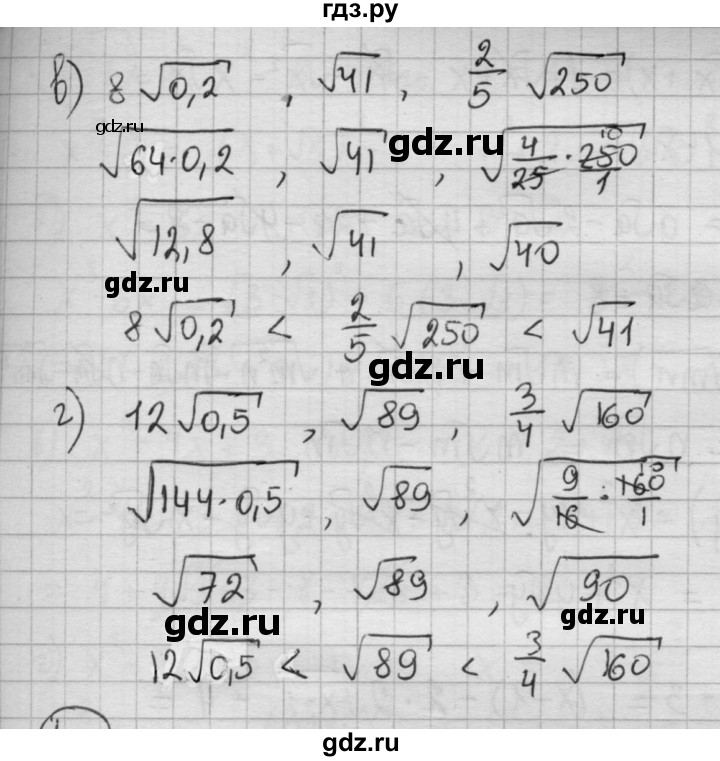 гдз.ру
в) 8√0,2 , √41 , 2/5 √250
gdz.ru
gdz.ru
√64·0,2 , √41 , √4/25 · 250/1 10
√12,8 , √41 , √40
gdz.ru
8√0,2 < 2/5 √250 < √41
gdz.ru
г) 12√0,5 , √89 , 3/4 √160
√144·0,5 , √89 , √9/16 · 160/1 10
√72 , √89 , √90
gdz.ru
gdz.ru
12√0,5 < √89 < 3/4 √160
gdz.ru